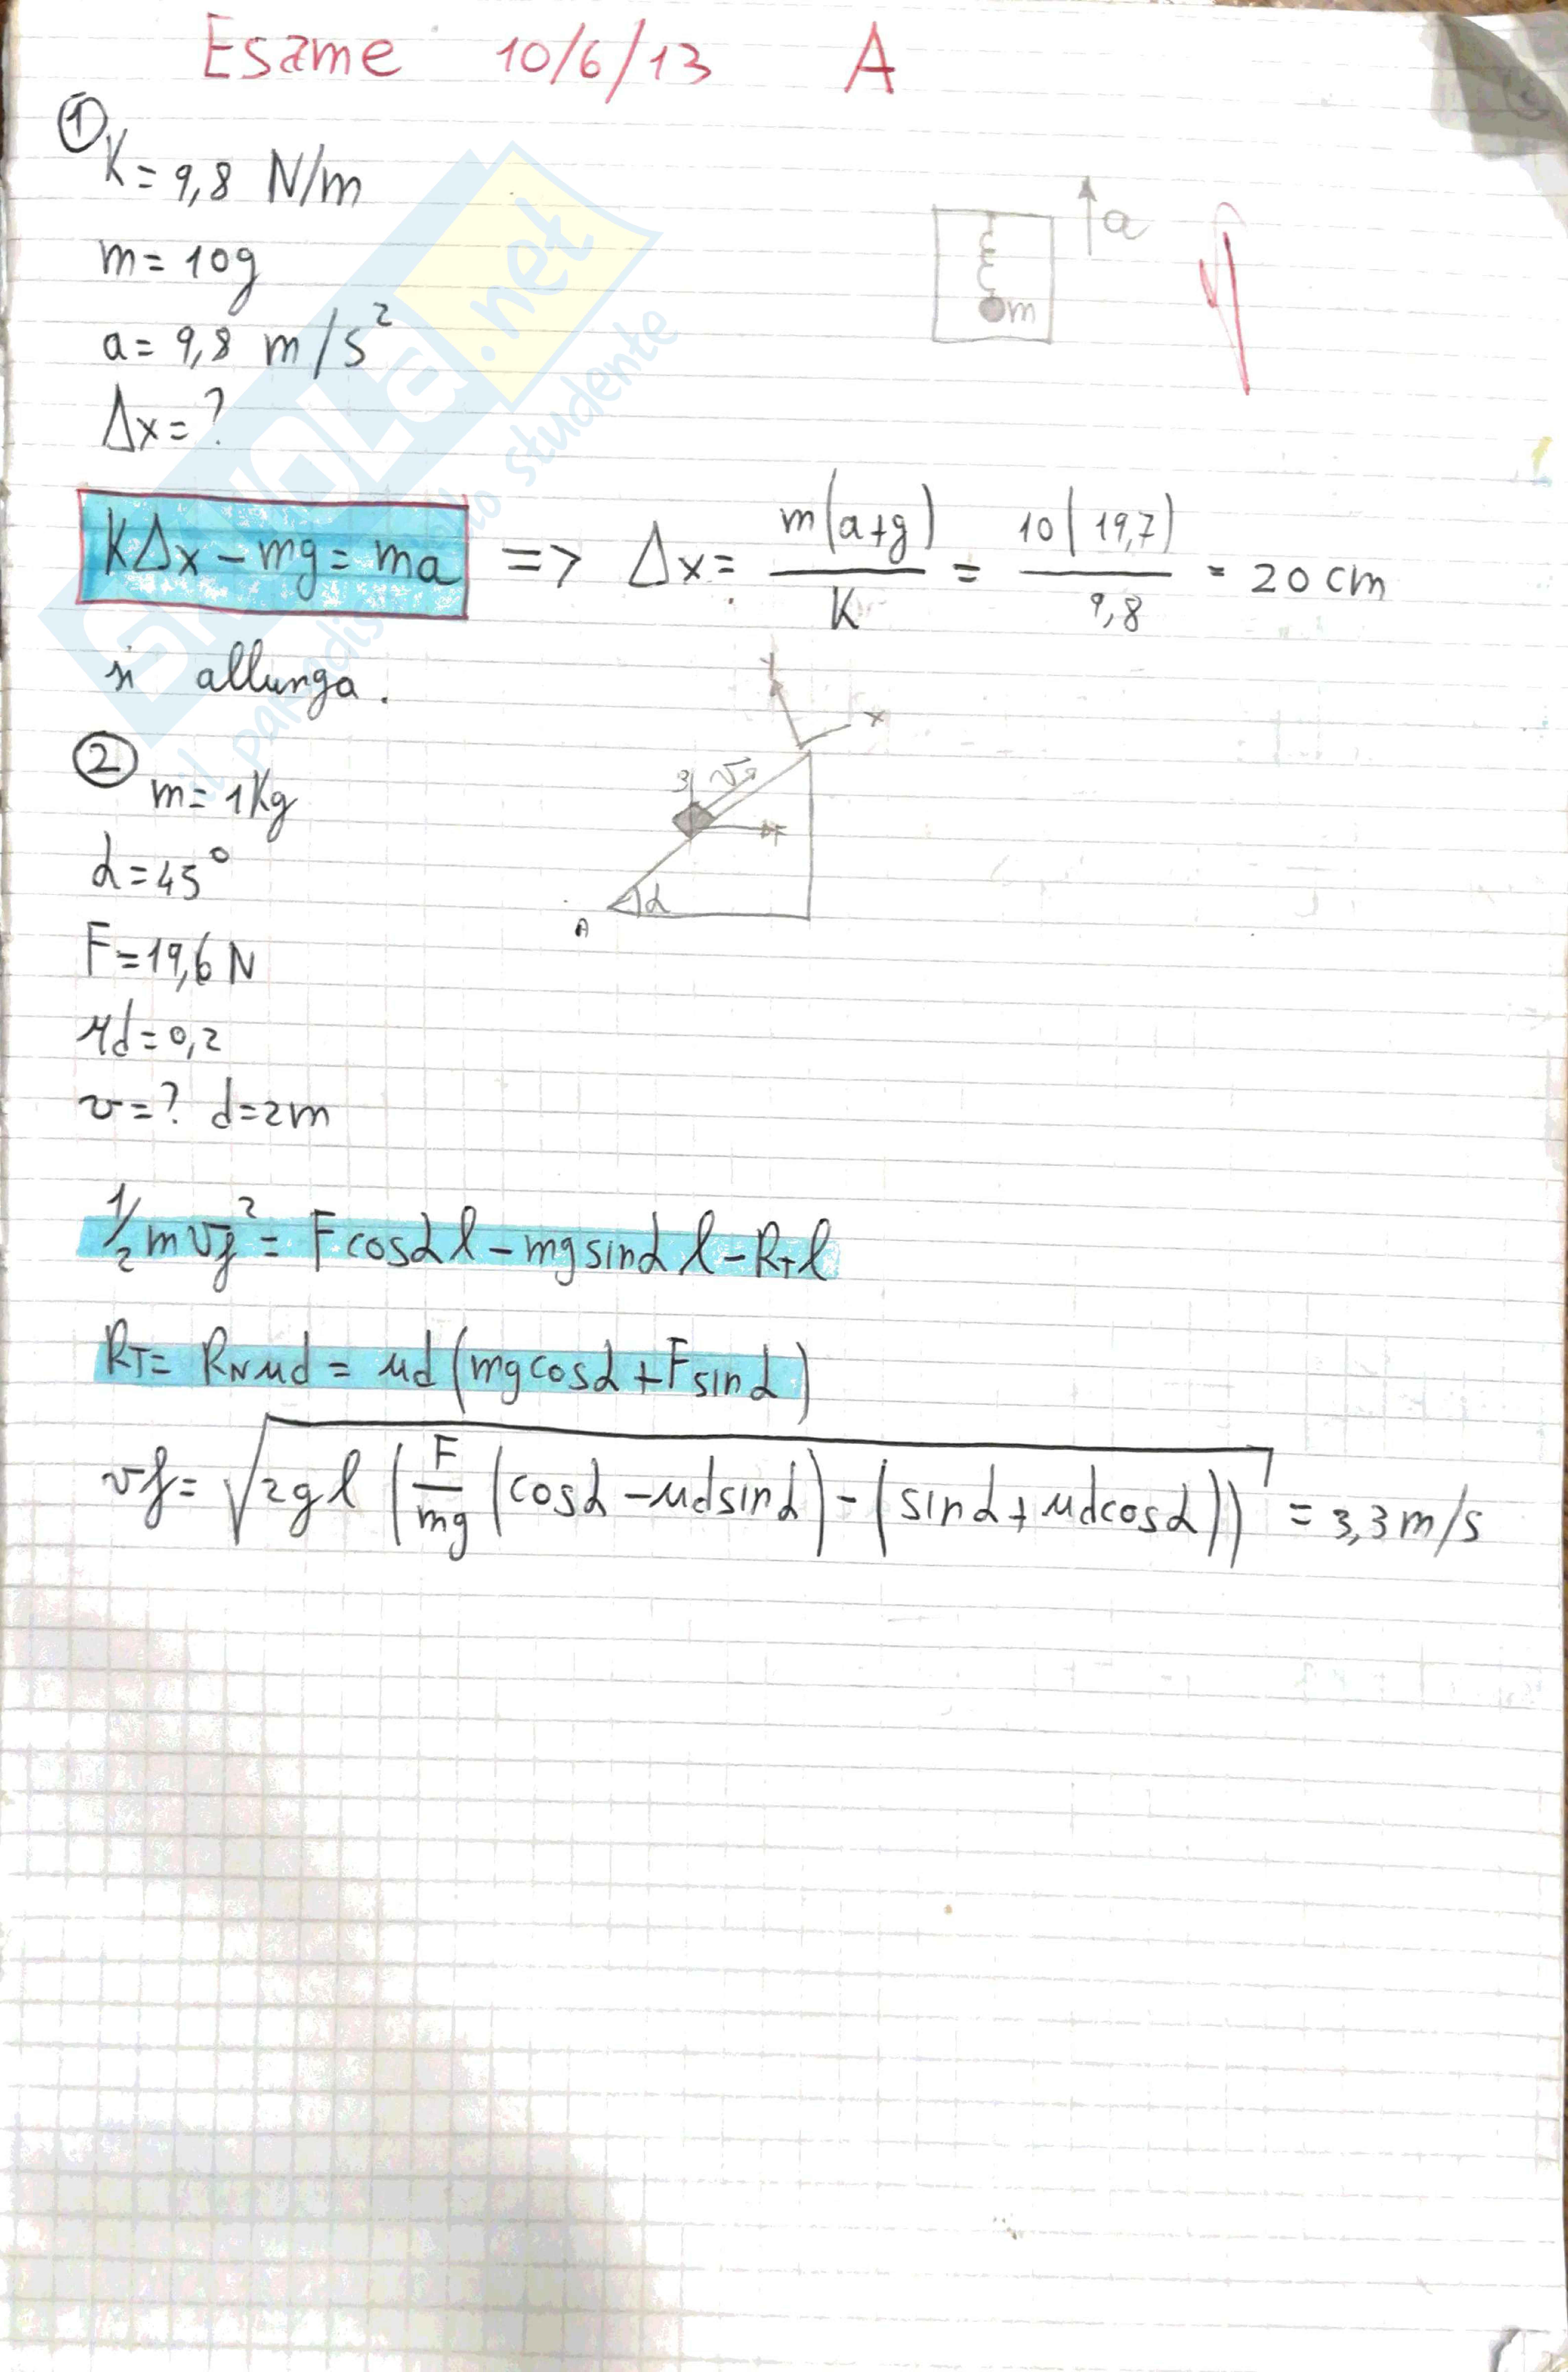 Esame 10/6/13 A
①
K = 9,8 N/m
m = 10g
a = 9,8 m/s²
Δx = ?
a
m
KΔx - mg = ma => Δx = m(a+g)/K = 10(19,7)/9,8 = 20 cm
si allunga.
②
m = 1Kg
α = 45°
F = 19,6 N
μd = 0,2
v = ? d = 2m
y
x
F
α
A
1/2 m vf² = F cosα l - mg sinα l - RT l
RT = RN μd = μd (mg cosα + F sinα)
vf = √(2gl (F/mg (cosα - μd sinα) - (sinα + μd cosα))) = 3,3 m/s
SKUOLA.net
il paradiso dello studente